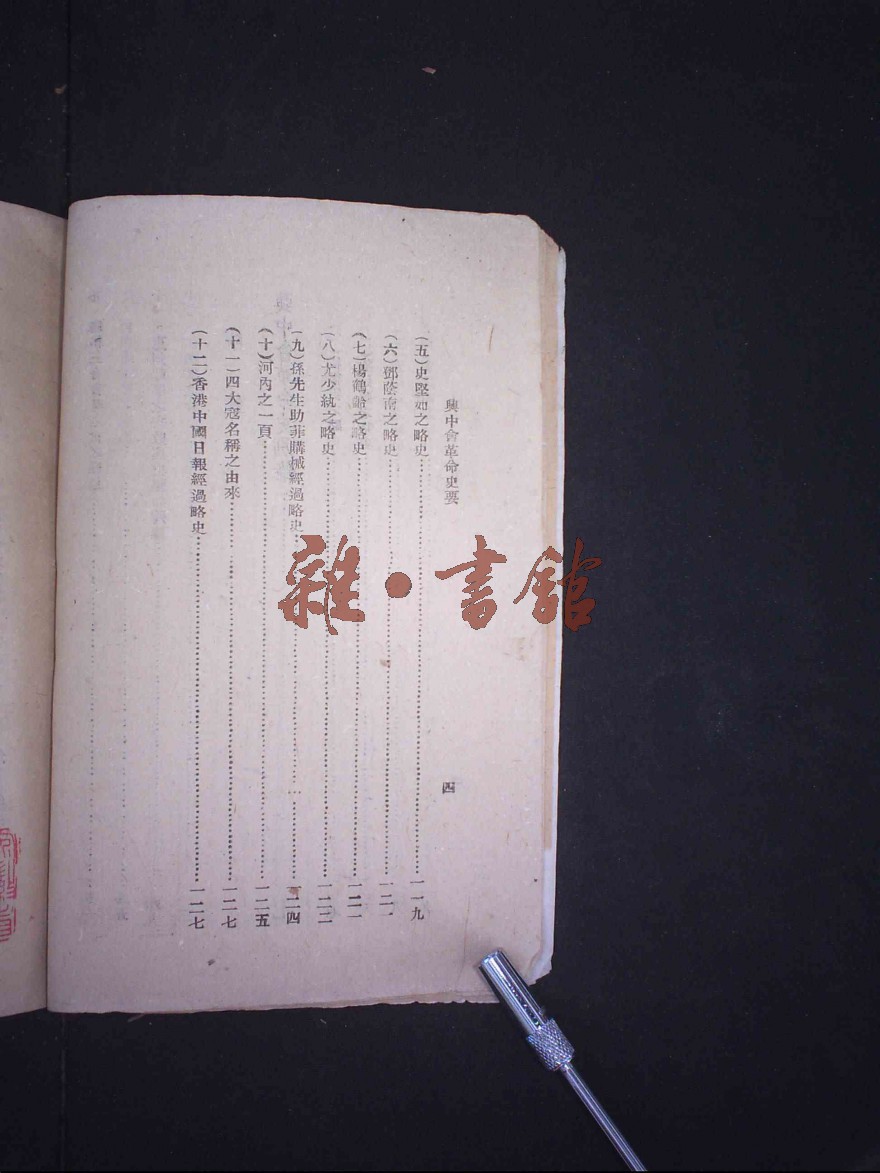 興中會革命史要
四
(五)史堅如之略史……一一九
(六)鄧蔭南之略史……一二一
(七)楊鶴齡之略史……一二一
(八)尤少紈之略史……一二二
(九)孫先生助菲購械經過略史……一二四
(十)河內之一頁……一二五
(十一)四大寇名稱之由來……一二七
(十二)香港中國日報經過略史……一二七
雜·書館